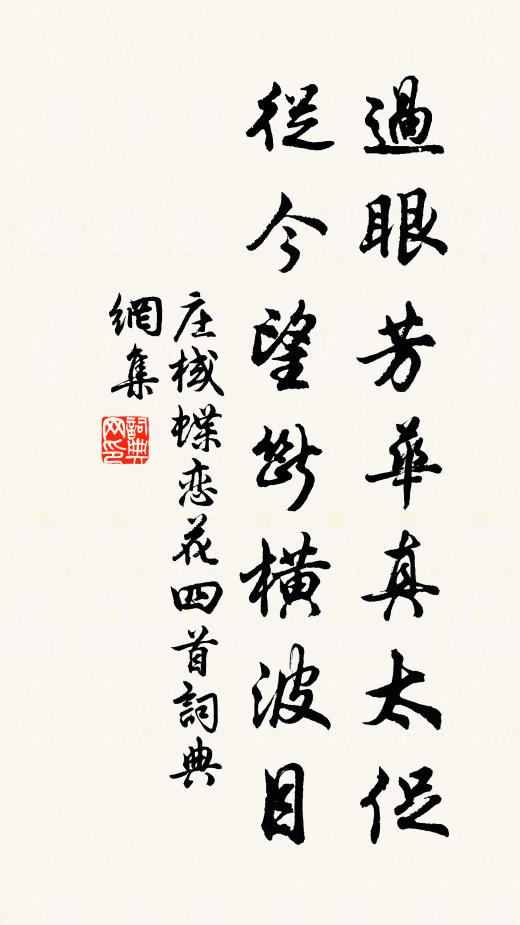 過眼芳華真太促
從今望斷橫波目
庄棫蝶恋花四首詞典
網集
詞典
网印